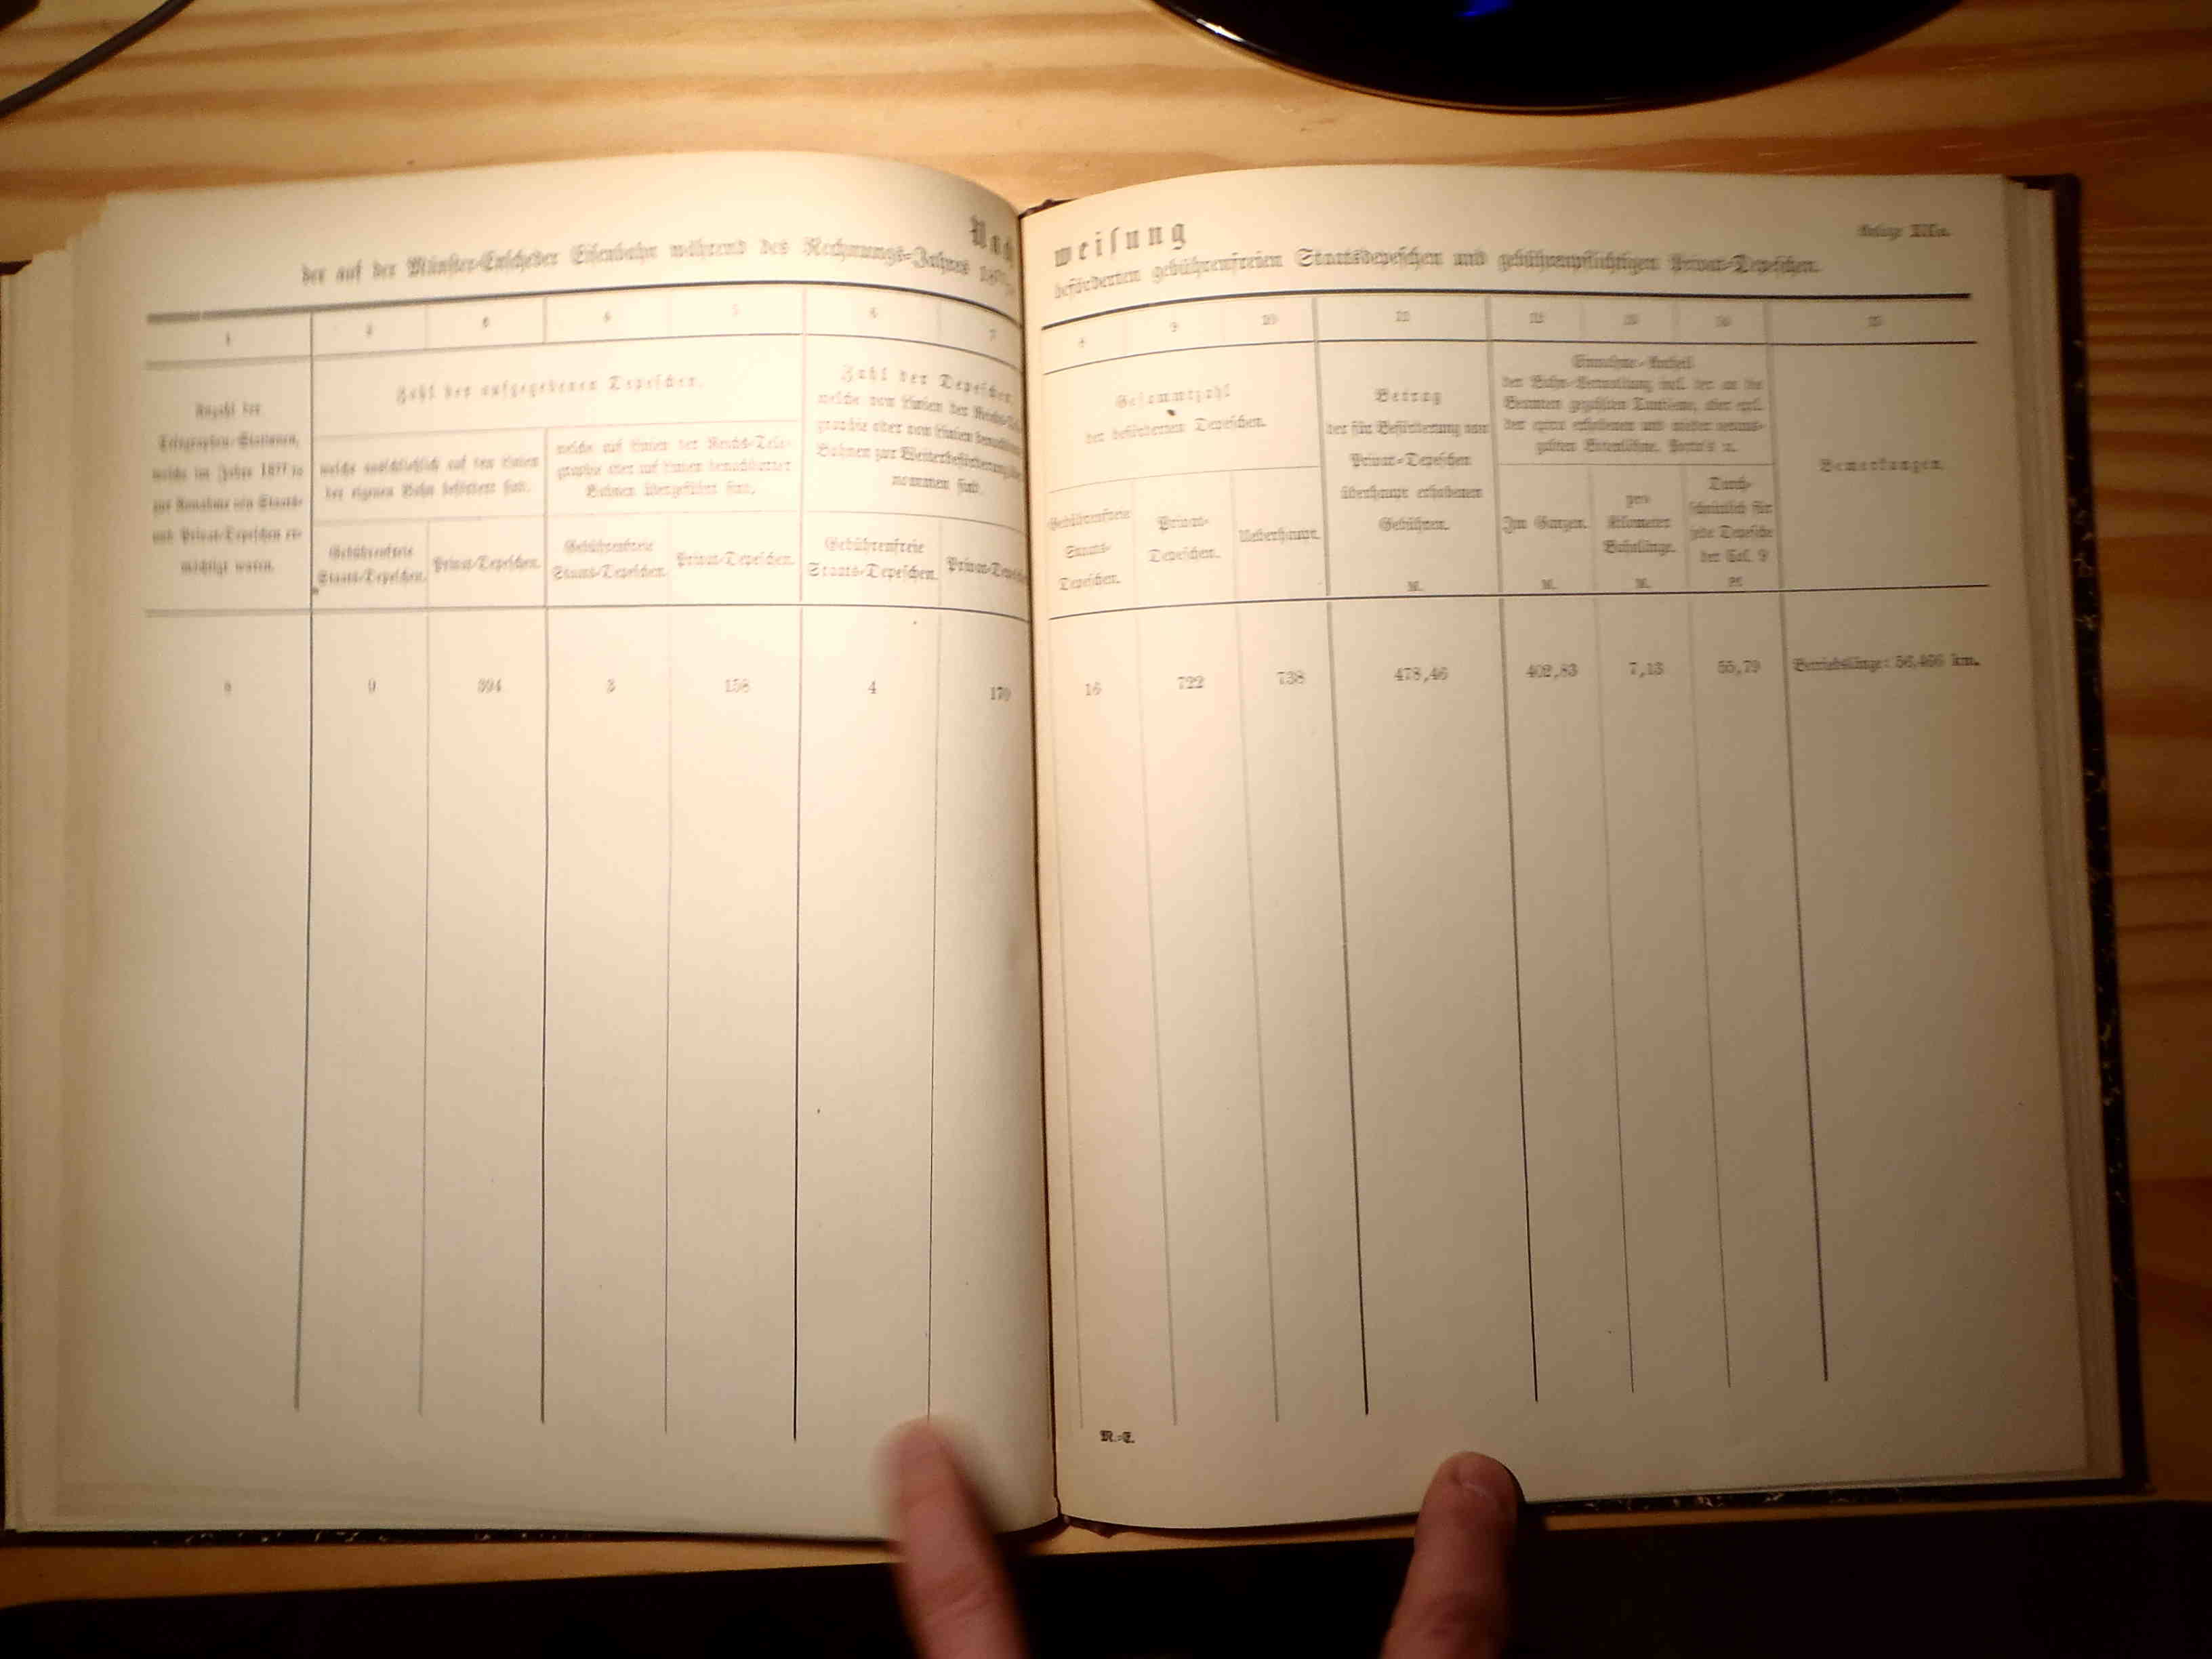 Nach
weisung
der auf der Münster-Enscheder Eisenbahn während des Rechnungs-Jahres
beförderten gebührenfreien Staatsdepeschen und gebührenpflichtigen Privat-Depeschen.
Anlage
1 2 3 4 5 6 7
8 9 10 11 12 13 14 15
Anzahl der
Telegraphen-Stationen,
welche im Jahre 1877
zur Annahme von Staats-
und Privat-Depeschen er-
mächtigt waren.
Zahl der aufgegebenen Depeschen,
welche ausschließlich auf den Linien
der eigenen Bahn befördert sind.
Gebührenfreie
Staats-Depeschen.
Privat-Depeschen.
welche auf Linien der Reichs-Tele-
graphie oder auf Linien benachbarter
Bahnen übergeführt sind.
Gebührenfreie
Staats-Depeschen.
Privat-Depeschen.
Zahl der Depeschen,
welche von Linien der Reichs-
graphie oder von Linien
Bahnen zur Weiterbeförderung
nommen sind.
Gebührenfreie
Staats-Depeschen.
Gesammtzahl
der beförderten Depeschen.
Gebührenfreie
Staats-
Depeschen.
Privat-
Depeschen.
Ueberhaupt.
Betrag
der für Beförderung von
Privat-Depeschen
überhaupt erhobenen
Gebühren.
M.
Einnahme-Antheil
der Bahn-Verwaltung incl. der an die
Beamten gezahlten Tantieme, aber excl.
der extra erhobenen und wieder veraus-
gabten Botenlöhne, Porto's 2c.
Im Ganzen.
M.
pro
Kilometer
Bahnlänge.
M.
Durch-
schnittlich für
jede Depesche
der Col. 9
Pf.
Bemerkungen.
9 394 3 158 4 170
16 722 738 478,46 402,83 7,13 55,79 Betriebslänge: 56,466 km.
R.-E.